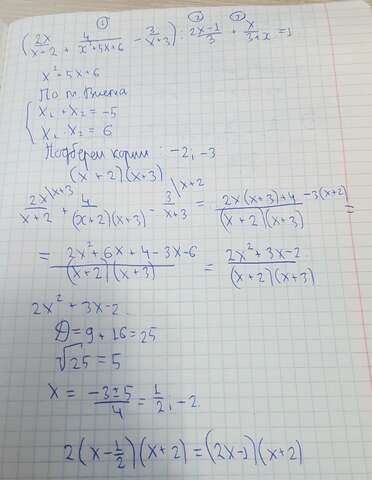 ① ② ③
(2x/x-2 + 4/x²+5x+6 - 3/x+3) : 2x-1/3 + x/3+x = 1
x² + 5x + 6
По т. Виета
{ x₁ + x₂ = -5
x₁ · x₂ = 6
Подберем корни: -2, -3
(x+2)(x+3)
2x\x+3/x+2 + 4/(x+2)(x+3) - 3\x+2/x+3 = 2x(x+3)+4-3(x+2)/(x+2)(x+3) =
= 2x²+6x+4-3x-6/(x+2)(x+3) = 2x²+3x-2/(x+2)(x+3)
2x² + 3x - 2.
D = 9 + 16 = 25
√25 = 5
x = -3±5/4 = 1/2, -2
2(x-1/2)(x+2) = (2x-1)(x+2)